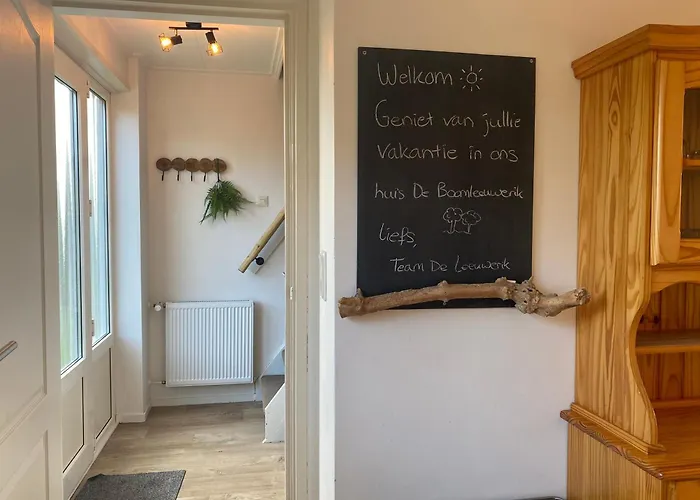 Welkom
Geniet van jullie
vakantie in ons
huis De Boomleeuwerik
liefs,
Team De Leeuwerik